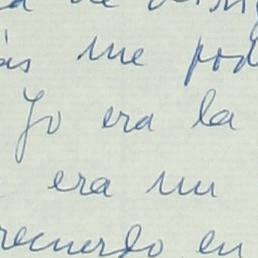 me pod
Yo era la
era un
recuerdo en